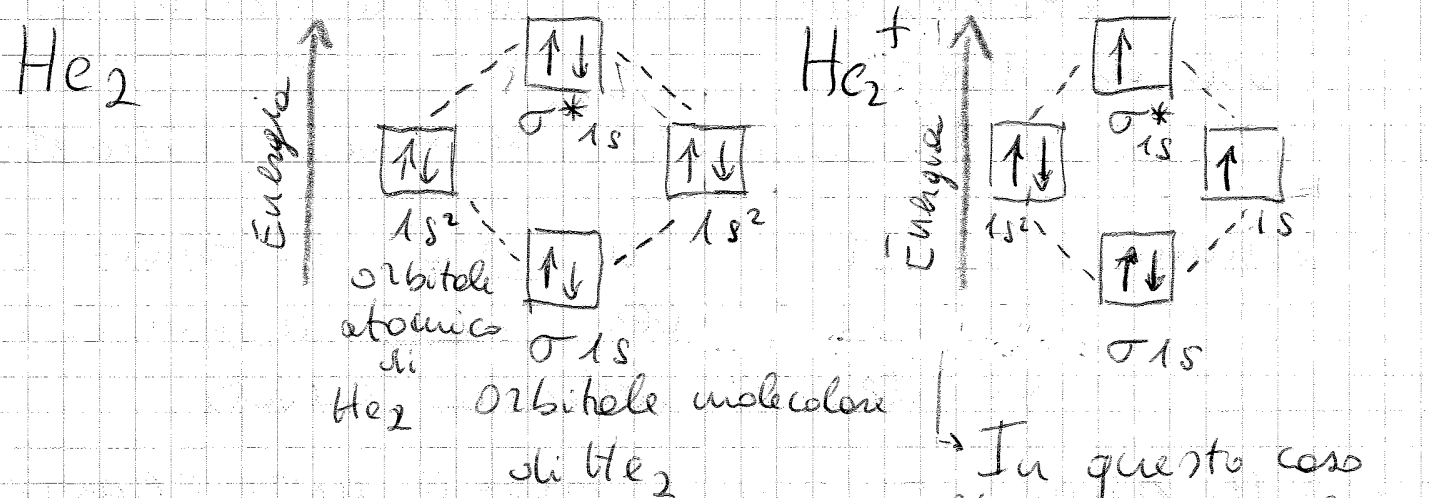 He₂
Energia
↑↓
σ*1s
↑↓
1s²
↑↓
1s²
↑↓
σ1s
orbitale
atomico
di
He₂
Orbitale molecolare
di He₂
He₂⁺
Energia
↑
σ*1s
↑↓
1s²
↑
1s
↑↓
σ1s
↳ In questo caso